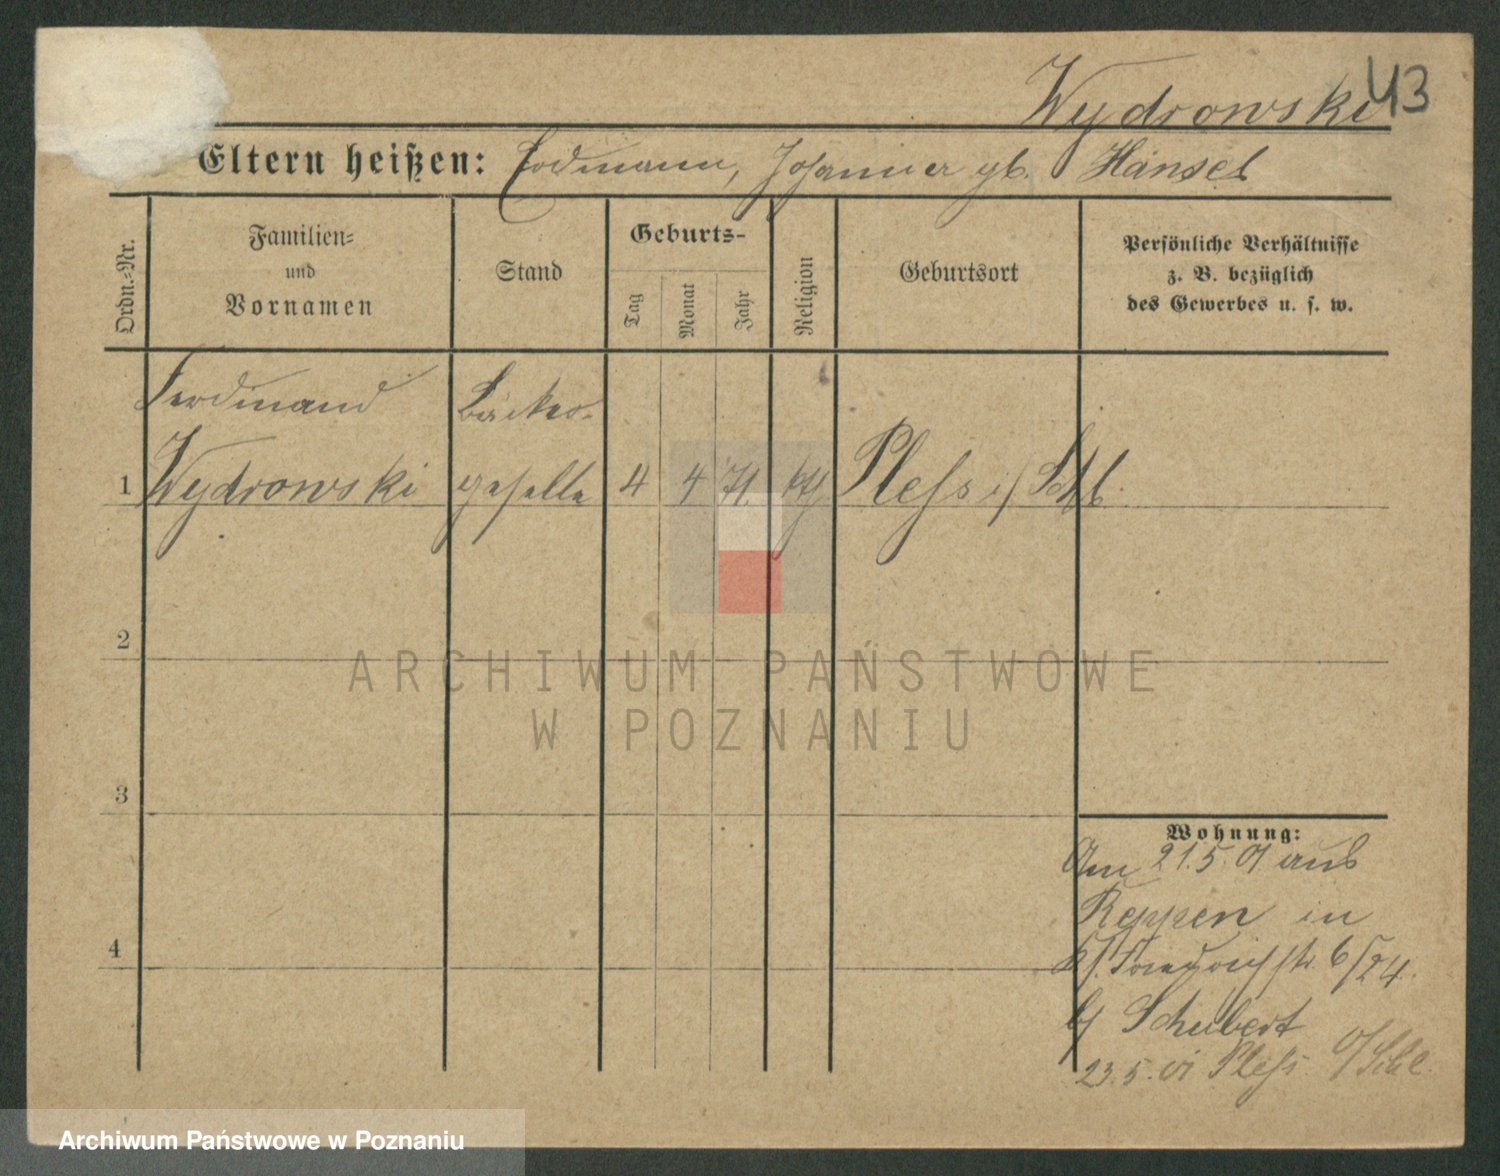 Wydrowski 43
Eltern heißen: Erdmann, Johanne gb. Hänsel
Ordn.-Nr.
Familien-
und
Vornamen
Stand
Geburts-
Tag
Monat
Jahr
Religion
Geburtsort
Persönliche Verhältnisse
z. B. bezüglich
des Gewerbes u. s. w.
Ferdinand Bäcker-
1 Wydrowski geselle 4 4 71. kth Pless i/ Schl
2
3
4
Wohnung:
Am 21.5.01 aus
Reppen in
Friedrichstr. 6/24.
b/ Schubert
23.5.01 Pless O/Schl.
ARCHIWUM PAŃSTWOWE
W POZNANIU
Archiwum Państwowe w Poznaniu